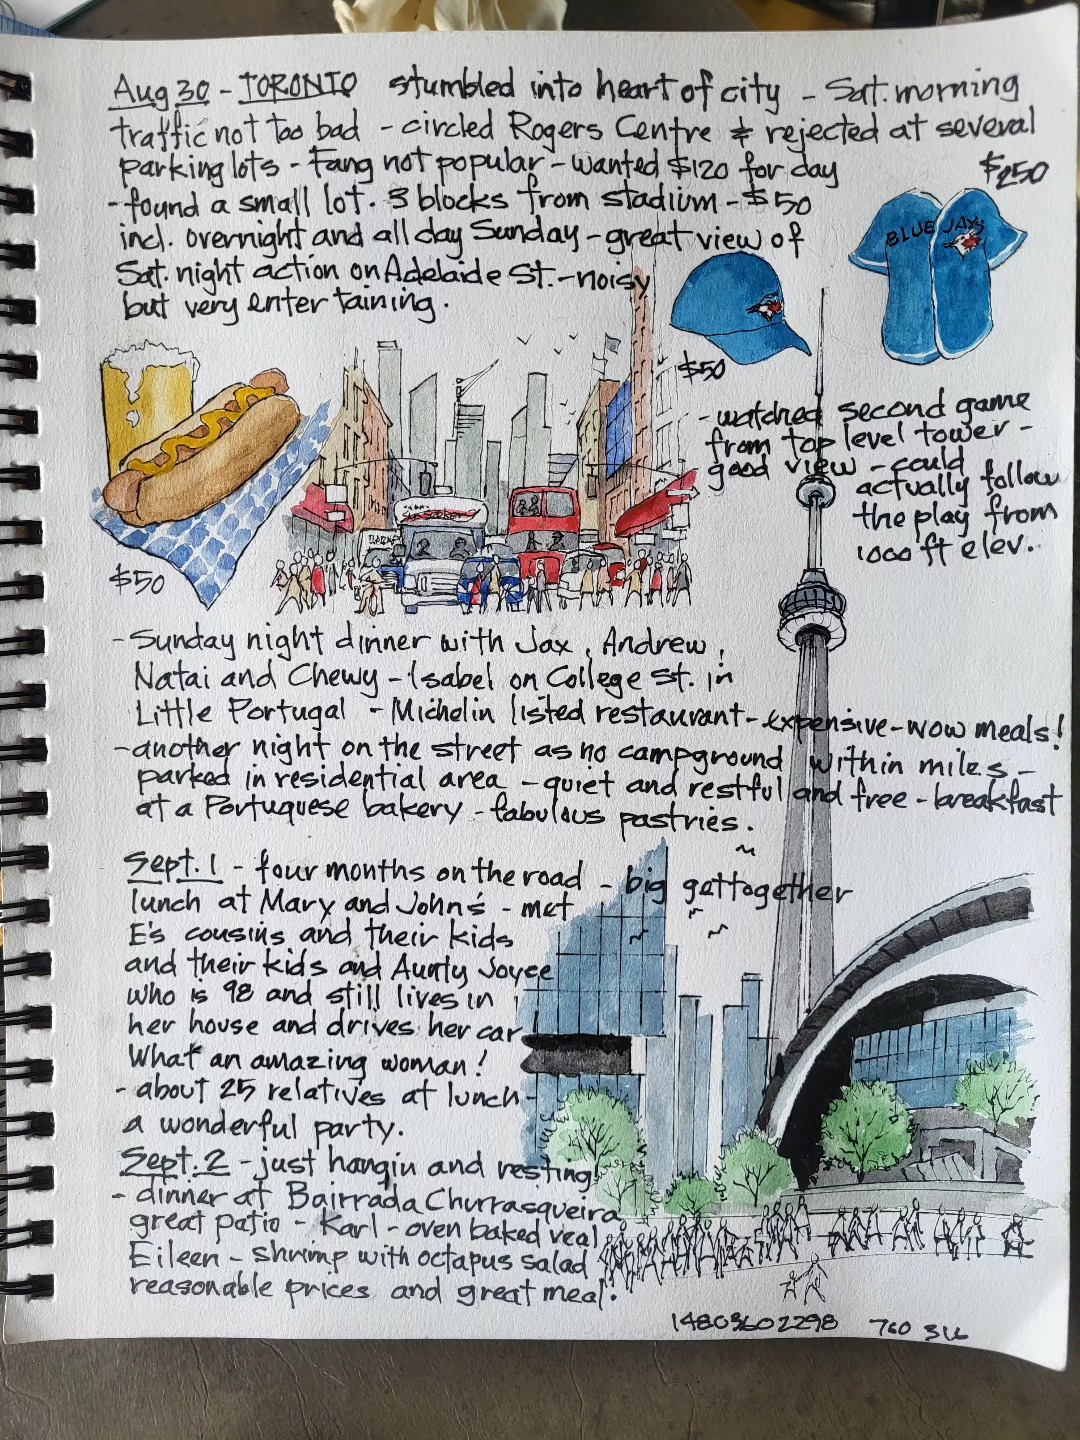 Aug 30 - TORONTO stumbled into heart of city - Sat. morning
traffic not too bad - circled Rogers Centre & rejected at several
parking lots - Fang not popular - wanted $120 for day
- found a small lot. 3 blocks from stadium - $50
incl. overnight and all day Sunday - great view of
Sat. night action on Adelaide St. - noisy
but very entertaining.
$250
BLUE JAYS
$50
- watched second game
from top level tower -
good view - could
actually follow
the play from
1000 ft elev.
$50
- Sunday night dinner with Jax, Andrew,
Natai and Chewy - Isabel on College St. in
Little Portugal - Michelin listed restaurant - expensive - wow meals!
- another night on the street as no campground within miles -
parked in residential area - quiet and restful and free - breakfast
at a Portuguese bakery - fabulous pastries.
Sept. 1 - four months on the road - big gettogether
lunch at Mary and John's - met
E's cousins and their kids
and their kids and Aunty Joyce
who is 98 and still lives in
her house and drives her car!
What an amazing woman!
- about 25 relatives at lunch -
a wonderful party.
Sept. 2 - just hangin and resting
- dinner at Bairrada Churrasqueira
great patio - Karl - oven baked veal
Eileen - shrimp with octapus salad
reasonable prices and great meal.
14803602298 760 316